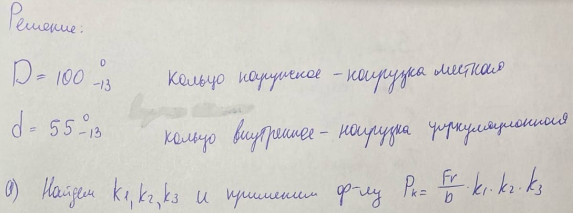 Решение:
D = 100 ⁰₋₁₃ кольцо наружное – нагрузка местная
d = 55 ⁰₋₁₃ кольцо внутреннее – нагрузка циркуляционная
а) Найдем k₁, k₂, k₃ и применим ф-лу Pₖ = Fr/b · k₁ · k₂ · k₃